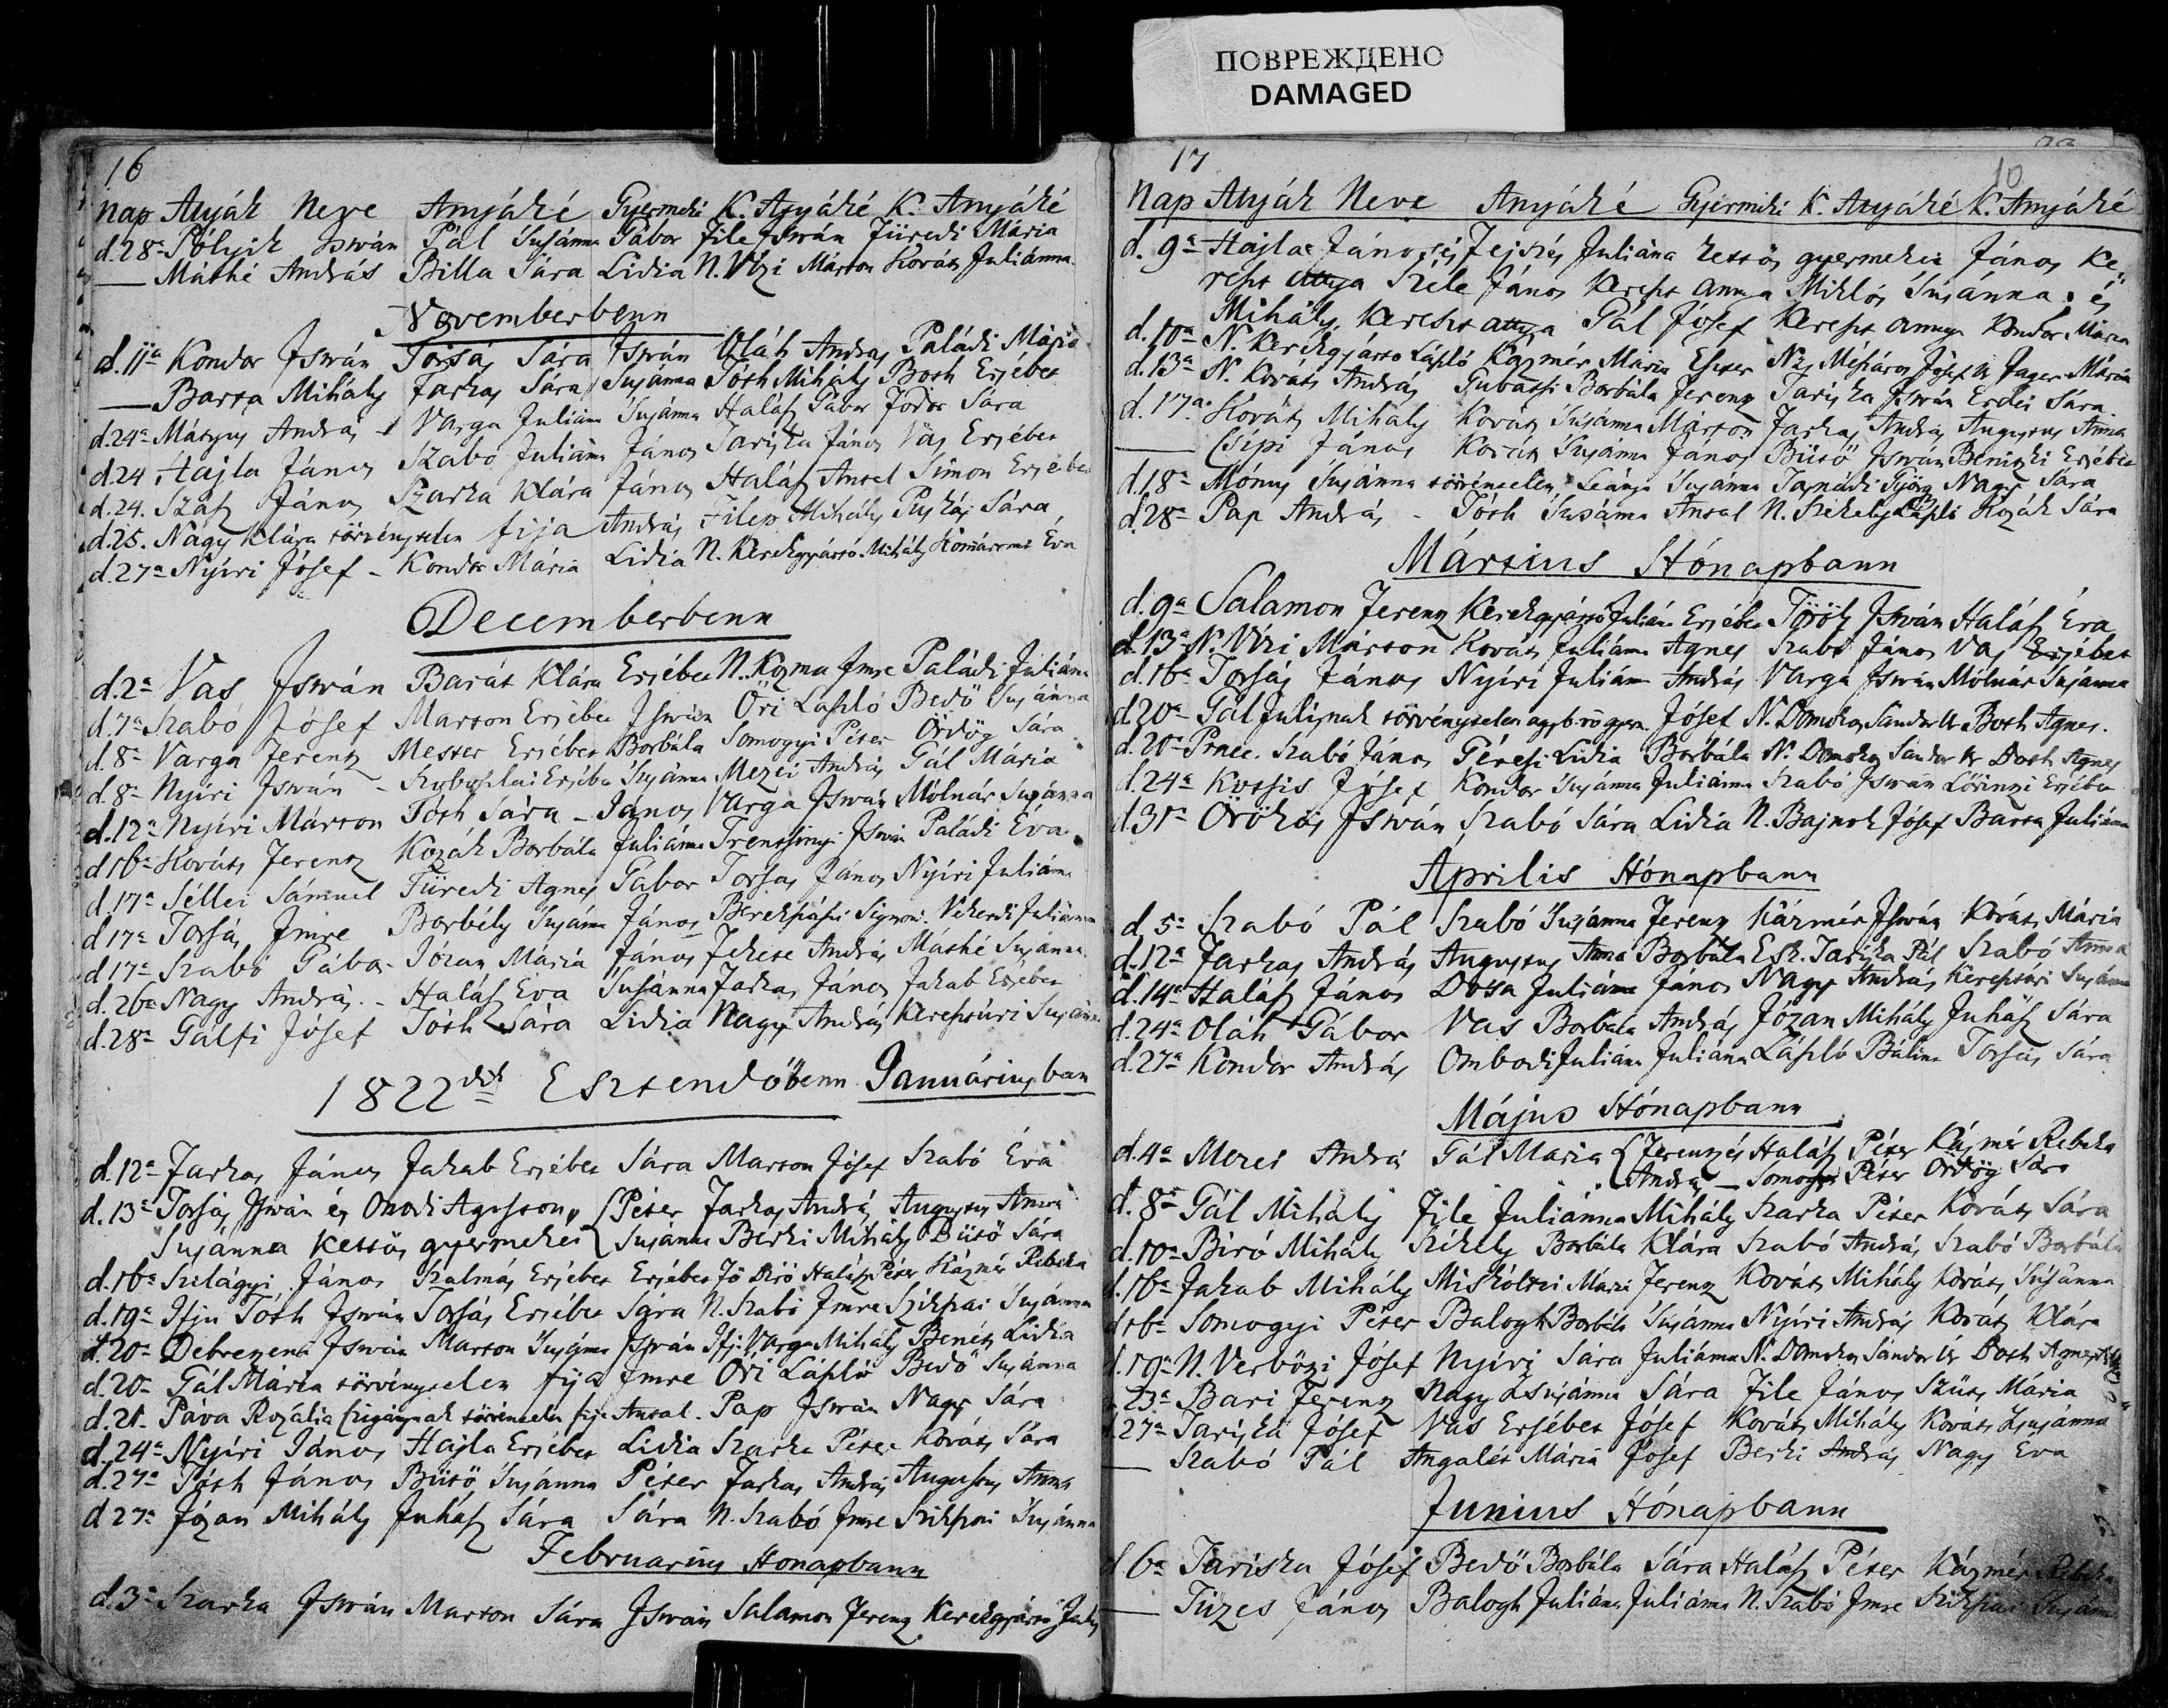 ПОВРЕЖДЕНО
DAMAGED
16
Nap Atyák Neve Anyáké Gyermeké K. Atyáké K. Anyáké
d. 28a Pólyik István Pál Susánna Gábor File István Füredi Mária
— Máthé András Billa Sára Lidia N. Vizi Márton Kováts Juliánna
Novemberbenn
d. 11a Kondor István Torsás Sára István Oláh András Paládi Mária
— Barta Mihály Farkas Sára Susánna Tóth Mihály Both Ersébet
d. 24a Mátyus András Varga Juliánna Susánna Halász Gábor Fodor Sára
d. 24 Hajla János Szabó Juliánna János Tariska János Vas Ersébet
d. 24. Szász János Szarka Klára János Halász Antal Simon Ersébet
d. 25. Nagy Klára törvénytelen fija András Filep Mihály Puskás Sára
d. 27a Nyíri Jósef – Kondor Mária Lidia N. Kerekgyártó Mihály Komáromi Éva
Decemberbenn
d. 2a Vas István Barát Klára Ersébet N. Kozma Imre Paládi Juliánna
d. 7a Szabó Jósef Marton Ersébet István Őri László Bedő Susánna
d. 8a Varga Ferentz Mester Ersébet Borbála Somogyi Péter Ördög Sára
d. 8a Nyíri István – Szoboszlai Ersébet Susánna Mezei András Gál Mária
d. 12a Nyíri Márton Tóth Sára – János Varga István Mólnár Susánna
d. 16a Kováts Ferentz Kozák Borbála Juliánna Trentsinyi István Paládi Éva
d. 17a Séllei Sámuel Füredi Agnes Gabor Torsas János Nyíri Juliánna
d. 17a Torsás Imre Borbély Susánna János Berekszászi Sigmond Vekerdi Juliánna
d. 17a Szabó Gábor Józan Mária János Fekete András Máthé Susánna
d. 26a Nagy András – Halász Eva Susánna Farkas János Jakab Ersébet
d. 28a Gálfi Jósef Tóth Sára Lidia Nagy András Keresztúri Susánna
1822dik Esztendőbenn Januáriusban
d. 12a Farkas János Jakab Ersébet Sára Marton Jósef Szabó Éva
d. 13a Torsás István és Onodi Agoston, { Péter Farkas András Augustus Anna
Susánna kettős gyermekei { Susánna Berki Mihály Bütö Sára
d. 16a Szilágyi János Szalmás Ersébet Ersébet Fő Biró Halász Péter Kázmér Rebeka
d. 19a Ifju Tóth István Torsás Ersébet Sára N. Szabó Imre Szikszai Susánna
d. 20a Debretzeni István Marton Susánna István Ifj. Varga Mihály Benéts Lidia
d. 20a Gál Mária törvénytelen fija Imre Őri László Bedő Susánna
d. 21. Páva Rozália tzigánynak törvéntelen fija Antal. Pap István Nagy Sára
d. 24a Nyíri János Hajla Ersébet Lidia Szarka Péter Kováts Sára
d. 27a Tóth János Bütö Susánna Péter Farkas András Augustus Anna
d. 27a Józan Mihály Juhász Sára Sára N. Szabó Imre Szikszai Susánna
Februarius Honapbann
d. 3a Szarka István Marton Sára István Salamon Ferentz Kerekgyártó Julis
17
10
Nap Atyák Neve Anyáké Gyermeké K. Atyáké K. Anyáké
d. 9a Hajla János és Fejszés Juliána kettős gyermekei János Ke-
reszt attya Szele János Kereszt Annya Miklós Susánna. és
Mihály, kereszt attya Pál Jósef Kereszt annya Kondor Mária
d. 10a N. Kerekgyártó László Kazmér Mária Eszter Nzs Mészáros Jósef Fazer Mária
d. 13a N. Kováts András Gubatsi Borbála Ferentz Tariska István Erdei Sára
d. 17a. Kováts Mihály Kováts Susánna Márton Farkas András Augustus Anna
— Csipi János Kováts Susánna János Bütö István Benitzki Ersébet
d. 18a Mónus Susánna törvéntelen Leánya Susánna Tasnádi Györg Nagy Sára
d. 28a Pap András – Tóth Susánna Antal N. Székely László Kozák Sára
Mártius Hónapbann
d. 9a Salamon Ferentz Kerekgyártó Juliána Ersébet Török István Halász Éva
d. 13a N. Vizi Márton Kováts Juliánna Agnes Szabó János Vas Ersébet
d. 16a Torsás János Nyíri Juliánna András Varga István Mólnár Susánna
d. 20a Gál Julisnak törvénytelen agyb. Jósef N. Domokos Sándor Ur Both Agnes.
d. 20a Praec. Szabó János Géresi Lidia Borbála N. Domokos Sándor Ur Both Agnes
d. 24a Kotsis Jósef Kondor Susánna Juliánna Szabó István Lőrintzi Ersébet
d. 31a Örökös István Szabó Sára Lidia N. Bajnok Jósef Barta Juliánna
Április Hónapbann
d. 5a Szabó Pál Szabó Susánna Ferentz Kázmér István Kováts Mária
d. 12a Farkas András Augustus Anna Borbála Esk. Tariska Pál Szabó Anna
d. 14a Halász János Dosa Juliánna János Nagy András Keresztúri Susánna
d. 24a Oláh Gábor Vas Borbála András Józan Mihály Juhász Sára
d. 27a Kondor András Ombodi Juliána Juliána László Bálint Torsás Sára
Május Hónapbann
d. 4a Mezei András Gál Maria { Ferentz és Halász Péter Kázmér Rebeka
András – Somogyi Péter Ördög Sára
d. 8a Gál Mihály File Juliánna Mihály Szarka Péter Kováts Sára
d. 10a Biró Mihály Székely Borbála Klára Szabó András Szabó Borbála
d. 16a Jakab Mihály Miskóltzi Mári Ferentz Kováts Mihály Kováts Susánna
d. 16a Somogyi Péter Balogh Borbála Susánna Nyíri András Kováts Klára
d. 19a N. Verbőzi Jósef Nyíri Sára Juliánna N. Domokos Sándor Ur Both Agnes
d. 23a Bari Ferentz Nagy Susánna Sára File János Szüts Mária
d. 27a Tariska Jósef Vas Ersébet Jósef Kováts Mihály Kováts Susánna
— Szabó Pál Angalét Mária Jósef Berki András Nagy Eva
Junius Hónapbann
d. 6a Tariska Jósef Bedő Borbála Sára Halász Péter Kázmér Rebeka
— Tüzes János Balogh Juliána Juliánna N. Szabó Imre Szikszai Susánna